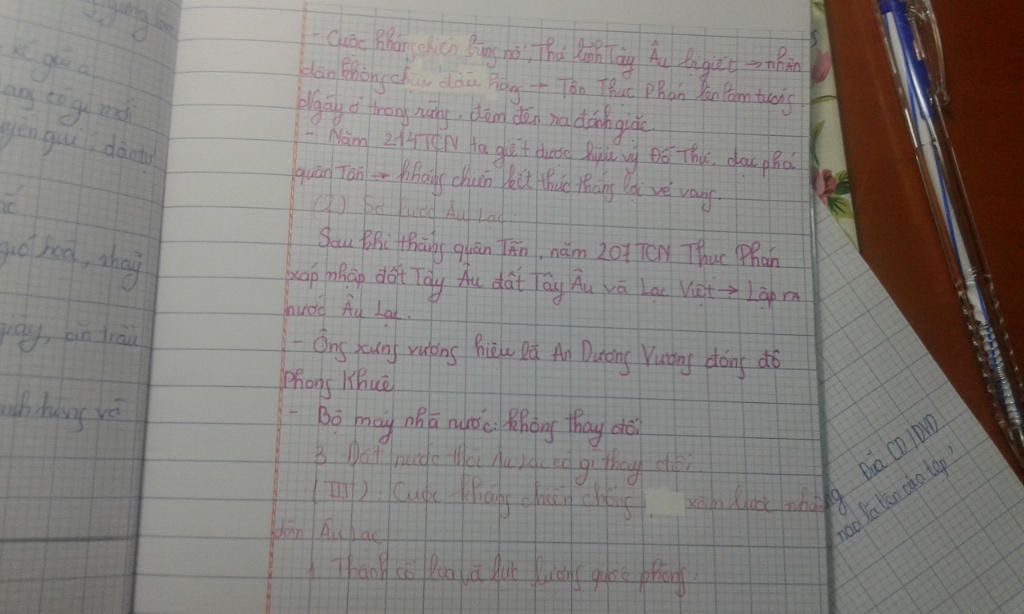 giữ a
ang có gì mới
dân tự
gió hoà, nhảy
giầy, ăn trầu
anh hùng và
- Cuộc kháng chiến bùng nổ, Thủ lĩnh Tây Âu bị giết → nhân
dân không chịu đầu hàng → Tôn Thục Phán lên làm tướng.
Ngày ở trong rừng, đêm đến ra đánh giặc.
- Năm 214 TCN ta giết được hiệu úy Đồ Thư, đập phá
quân Tần → kháng chiến kết thúc thắng lợi vẻ vang.
(2) Nước Âu Lạc
Sau khi thắng quân Tần, năm 207 TCN Thục Phán
xáp nhập đất Tây Âu đất Tây Âu và Lạc Việt → Lập ra
nước Âu Lạc.
- Ông xưng vương hiệu là An Dương Vương đóng đô
Phong Khuê
- Bộ máy nhà nước: không thay đổi
3 Đất nước thời Âu Lạc có gì thay đổi.
(III) Cuộc kháng chiến chống xâm lược nhân
dân Âu Lạc
1 Thành cổ loa và lực lượng quốc phòng.
Đĩa CD/DVD
nào là tên của tệp?